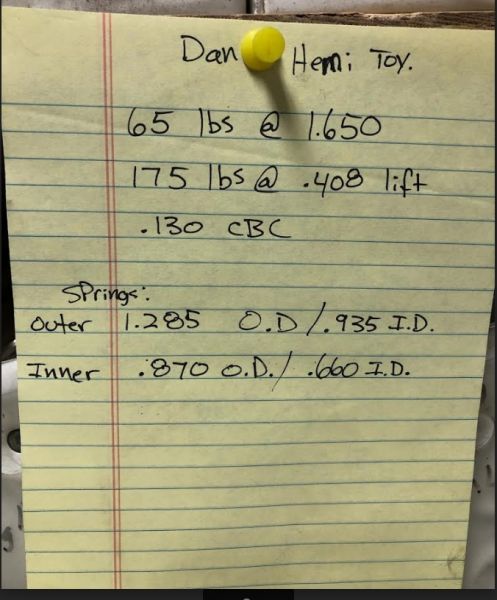 Dan Hemi Toy.
65 lbs @ 1.650
175 lbs @ .408 lift
.130 CBC
SPrings:
Outer 1.285 O.D/.935 I.D.
Inner .870 O.D./ .660 I.D.